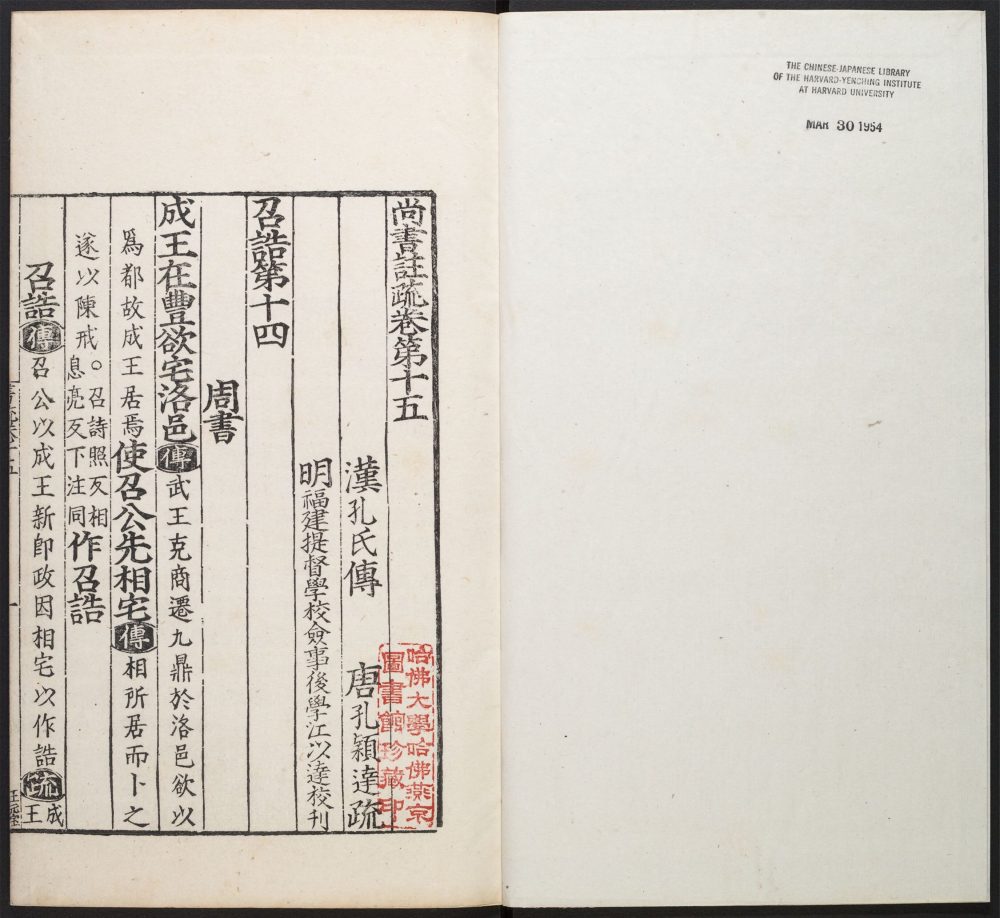 THE CHINESE-JAPANESE LIBRARY
OF THE HARVARD-YENCHING INSTITUTE
AT HARVARD UNIVERSITY
MAR 30 1954
尚書註疏卷第十五
漢孔氏傳 唐孔穎達疏
明福建提督學校僉事後學江以達校刊
召誥第十四
周書
成王在豐欲宅洛邑傳武王克商遷九鼎於洛邑欲以
爲都故成王居焉使召公先相宅傳相所居而卜之
遂以陳戒○召詩照反相息亮反下注同作召誥
召誥傳召公以成王新卽政因相宅以作誥疏成王
哈佛大學哈佛燕京
圖書館珍藏印